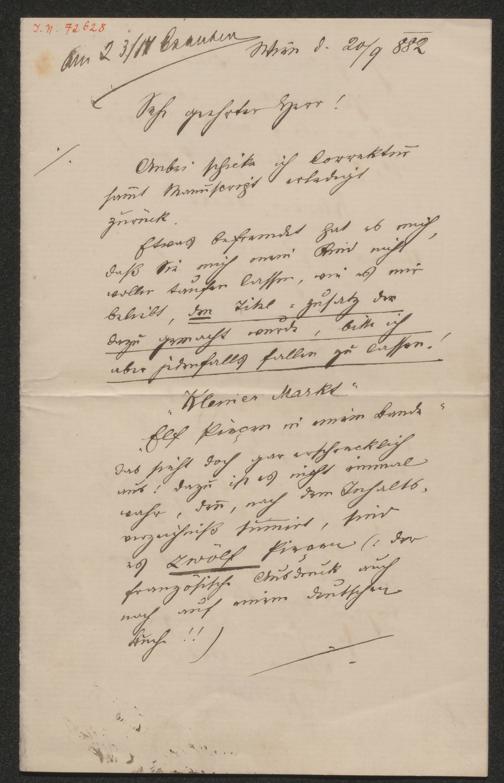 I. N. 72628
am 23/IX
Wien d. 20/9 882
Sehr geehrter Herr!
Anbei schicke ich Correktur
sammt Manuscript erledigt
zurück.
Etwas befremdet hat es mich,
daß Sie mich mein Kind nicht
wollen taufen lassen, wie es mir
beliebt, den Titel-Zusatz der
dazu gemacht wurde, bitte ich
aber jedenfalls fallen zu lassen!
"Kleiner Markt"
"Elf Pieçen in einem Bande"
das sieht doch gar erschrecklich
aus! dazu ist es nicht einmal
wahr, denn, nach dem Inhalts-
verzeichniß summirt, sind
es zwölf Pieçen (: der
französische Ausdruck auch
noch auf einem deutschen
Buche!!)